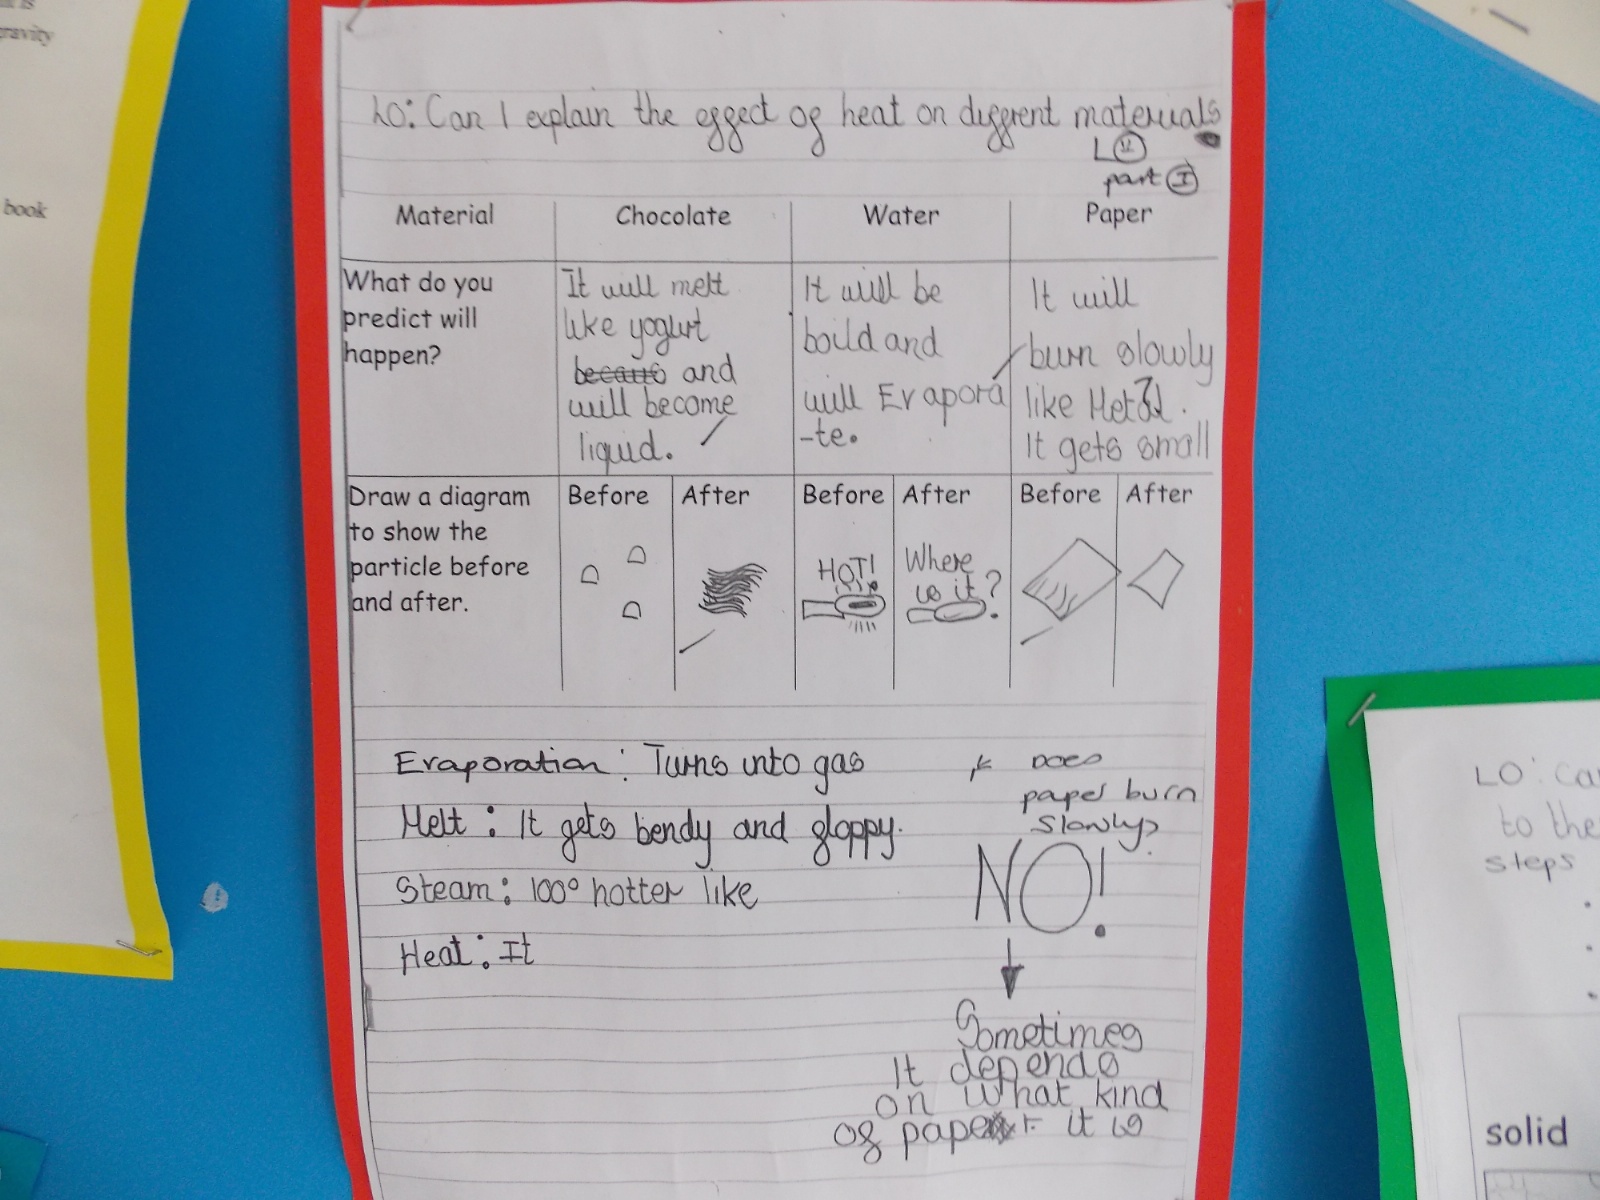 gravity
book
LO: Can I explain the effect of heat on diffrent materials
part I
Material Chocolate Water Paper
What do you
predict will
happen?
It will melt
like yogurt
becaus and
will become
liquid.
It will be
boild and
will Evapora
-te.
It will
burn slowly
like Metal.
It gets small
Draw a diagram
to show the
particle before
and after.
Before After Before After Before After
HOT!
Where
is it?
Evaporation: Turns into gas
Melt: It gets bendy and gloppy.
Steam: 100° hotter like
Heat: It
* Does
paper burn
slowly?
NO!
Sometimes
It depends
on what kind
of paper it is
LO: Ca
to the
steps
solid